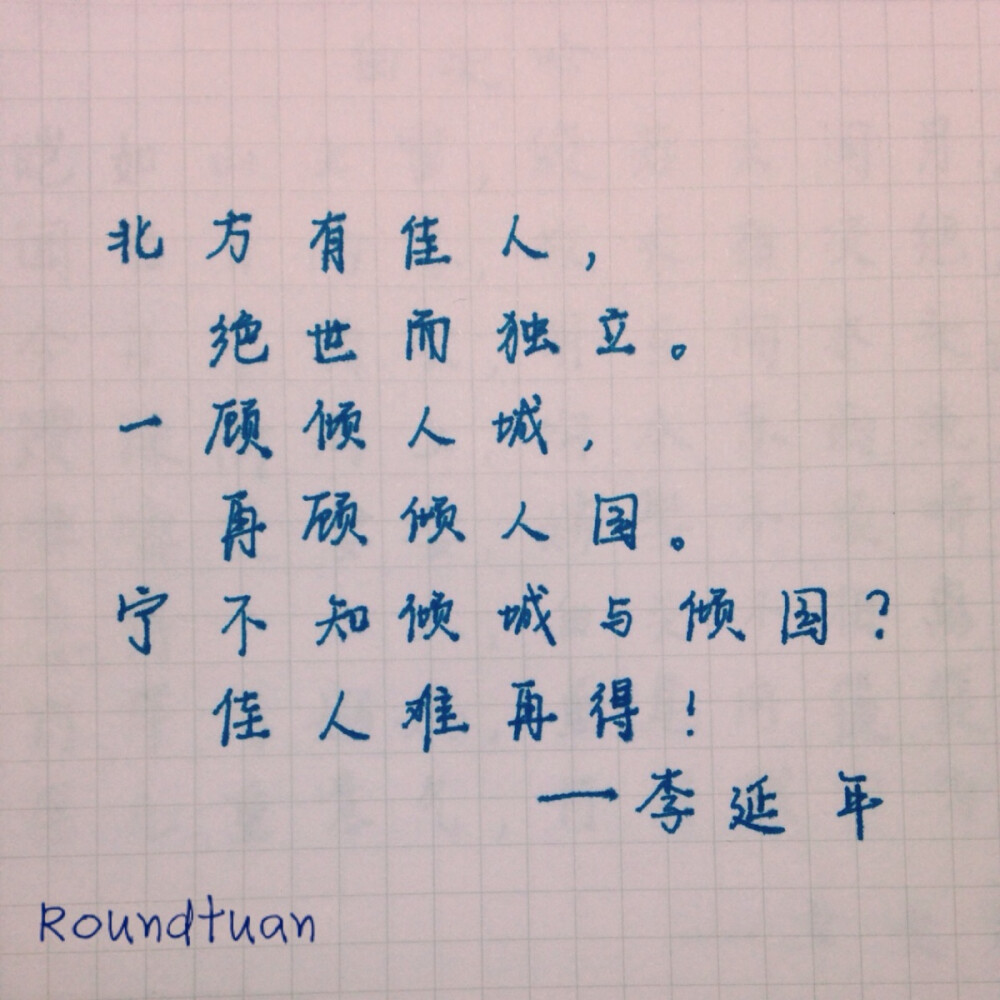 北方有佳人，
绝世而独立。
一顾倾人城，
再顾倾人国。
宁不知倾城与倾国？
佳人难再得！
——李延年
Roundtuan